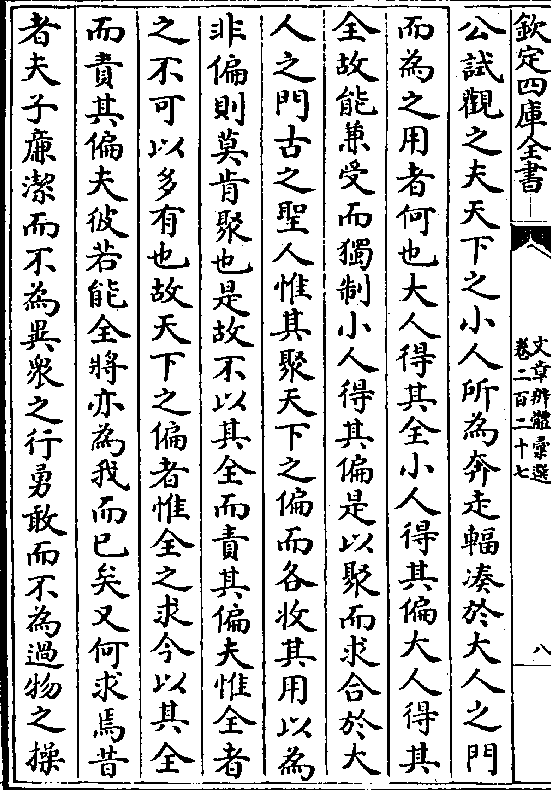 欽定四庫全書
文章辨體彙選
卷二百二十七
八
公試觀之夫天下之小人所為奔走輻凑於大人之門
而為之用者何也大人得其全小人得其偏大人得其
全故能兼受而獨制小人得其偏是以聚而求合於大
人之門古之聖人惟其聚天下之偏而各收其用以為
非偏則莫肯聚也是故不以其全而責其偏夫惟全者
之不可以多有也故天下之偏者惟全之求今以其全
而責其偏夫彼若能全將亦為我而已矣又何求焉昔
者夫子廉潔而不為異衆之行勇敢而不為過物之操